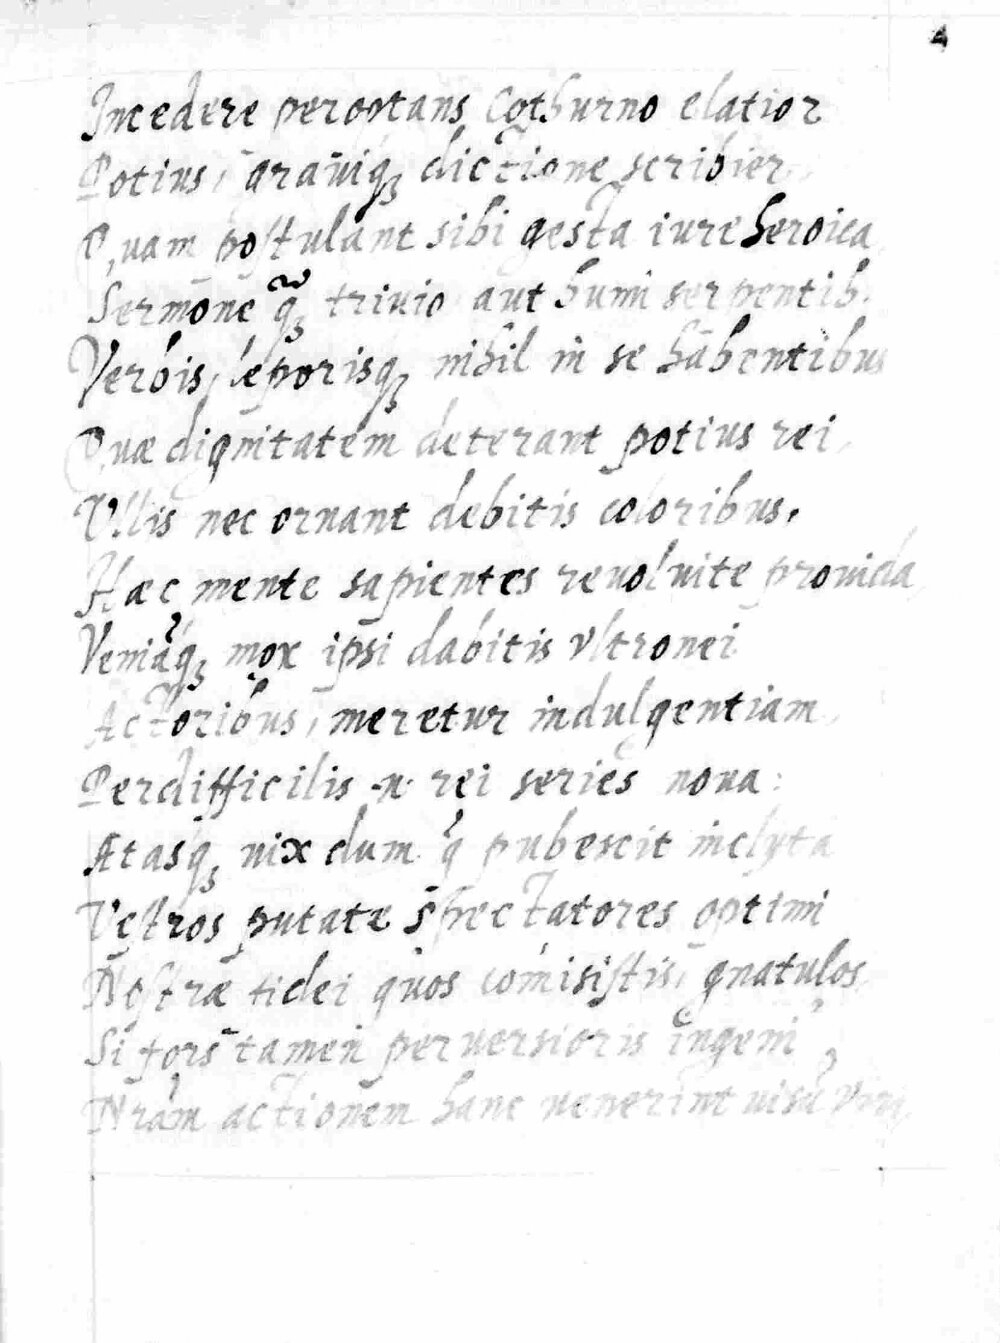 4
Incedere peroptans Cothurno elatior
Potius, grauiq; dictione scribier,
Quam postulant sibi gesta iure heroica,
Sermone q̃; triuio aut humi serpentib.
Verbis, leporisq; nihil in se habentibus
Quæ dignitatem deterant potius rei,
Vllis nec ornant debitis coloribus.
Hæc mente sapientes reuoluite prouida,
Veniãq; mox ipsi dabitis vltronei
Actoribus, meretur indulgentiam,
Perdifficilis .n. rei series noua:
Ætasq; uix dum q̃ pubescit inclyta
Vestros putate spectatores optimi
Nostræ fidei quos comisistis, gnatulos,
Si fors tamen peruersioris ingenij
Nram actionem hanc uenerint uisũ viri,